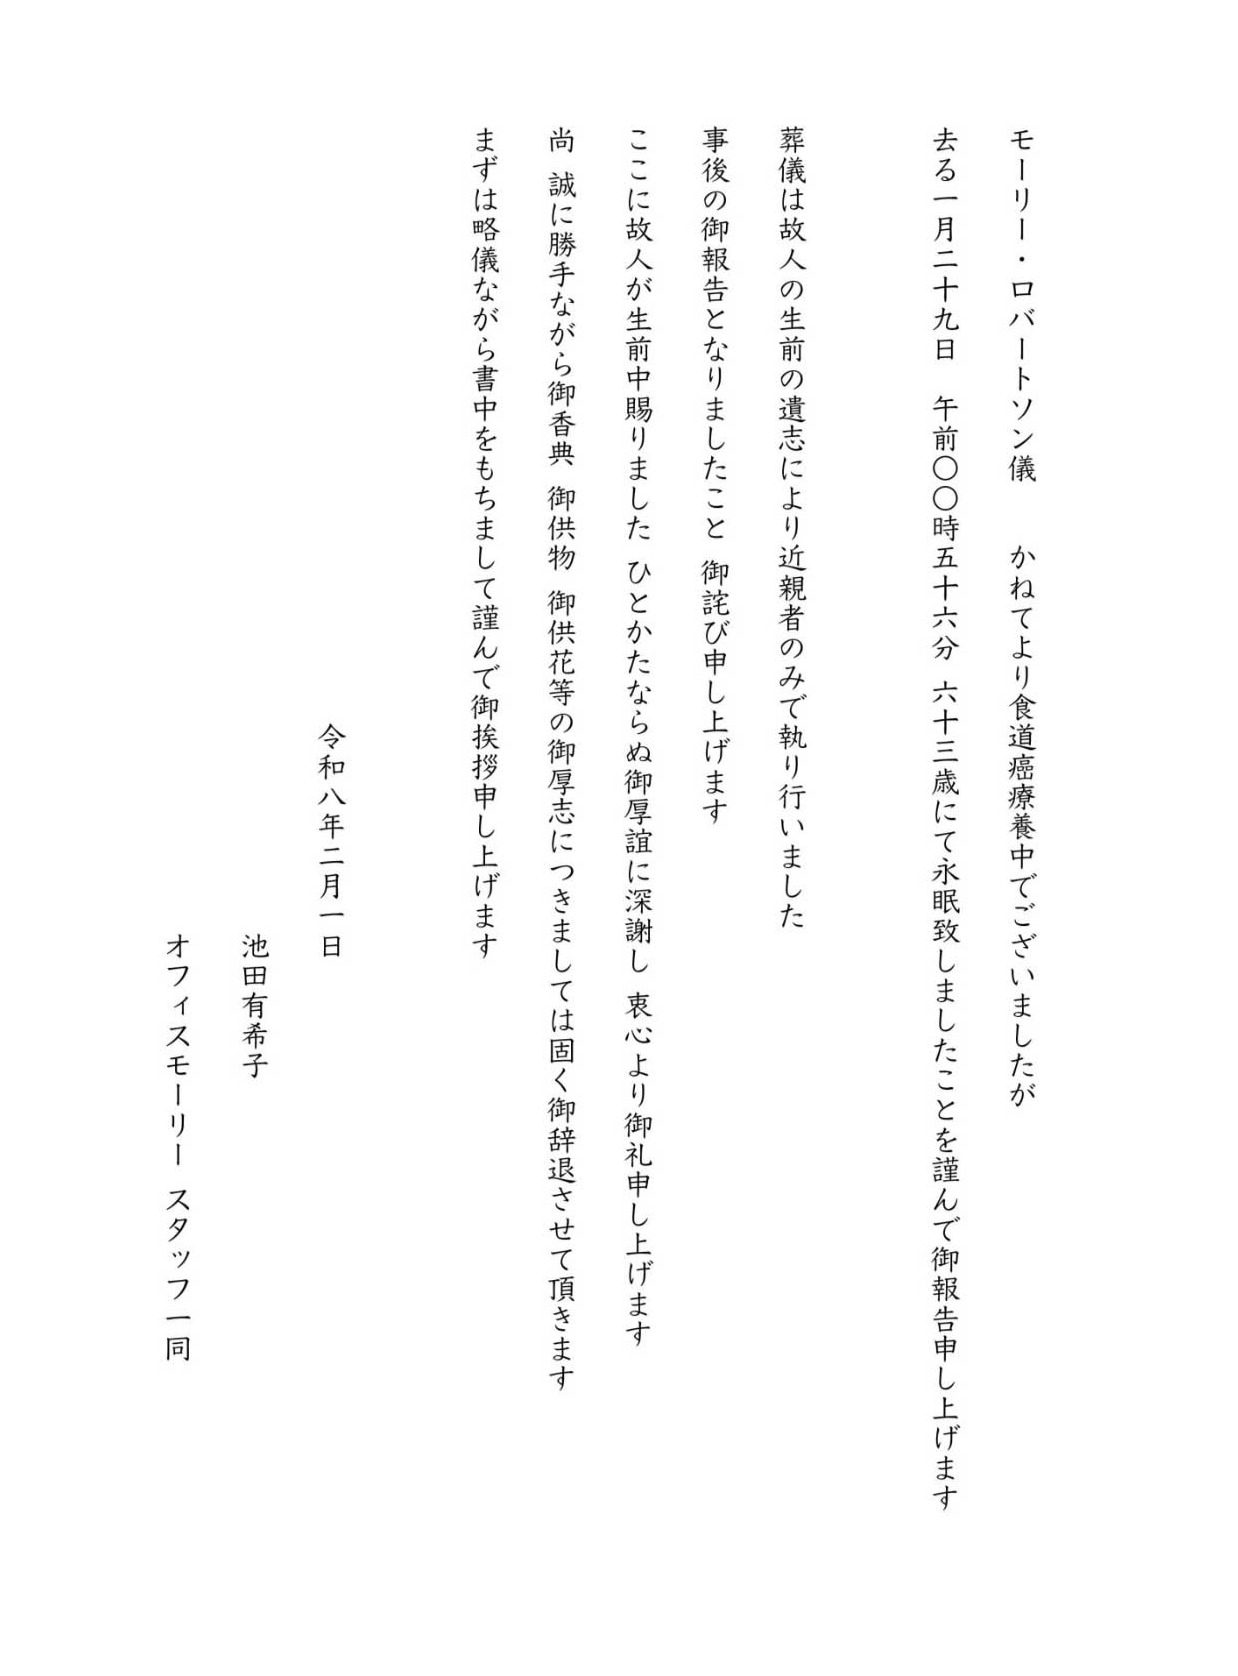 モーリー・ロバートソン儀　かねてより食道癌療養中でございましたが
去る一月二十九日　午前〇〇時五十六分 六十三歳にて永眠致しましたことを謹んで御報告申し上げます
葬儀は故人の生前の遺志により近親者のみで執り行いました
事後の御報告となりましたこと 御詫び申し上げます
ここに故人が生前中賜りました ひとかたならぬ御厚誼に深謝し 衷心より御礼申し上げます
尚 誠に勝手ながら御香典 御供物 御供花等の御厚志につきましては固く御辞退させて頂きます
まずは略儀ながら書中をもちまして謹んで御挨拶申し上げます
令和八年二月一日
池田有希子
オフィスモーリー スタッフ一同